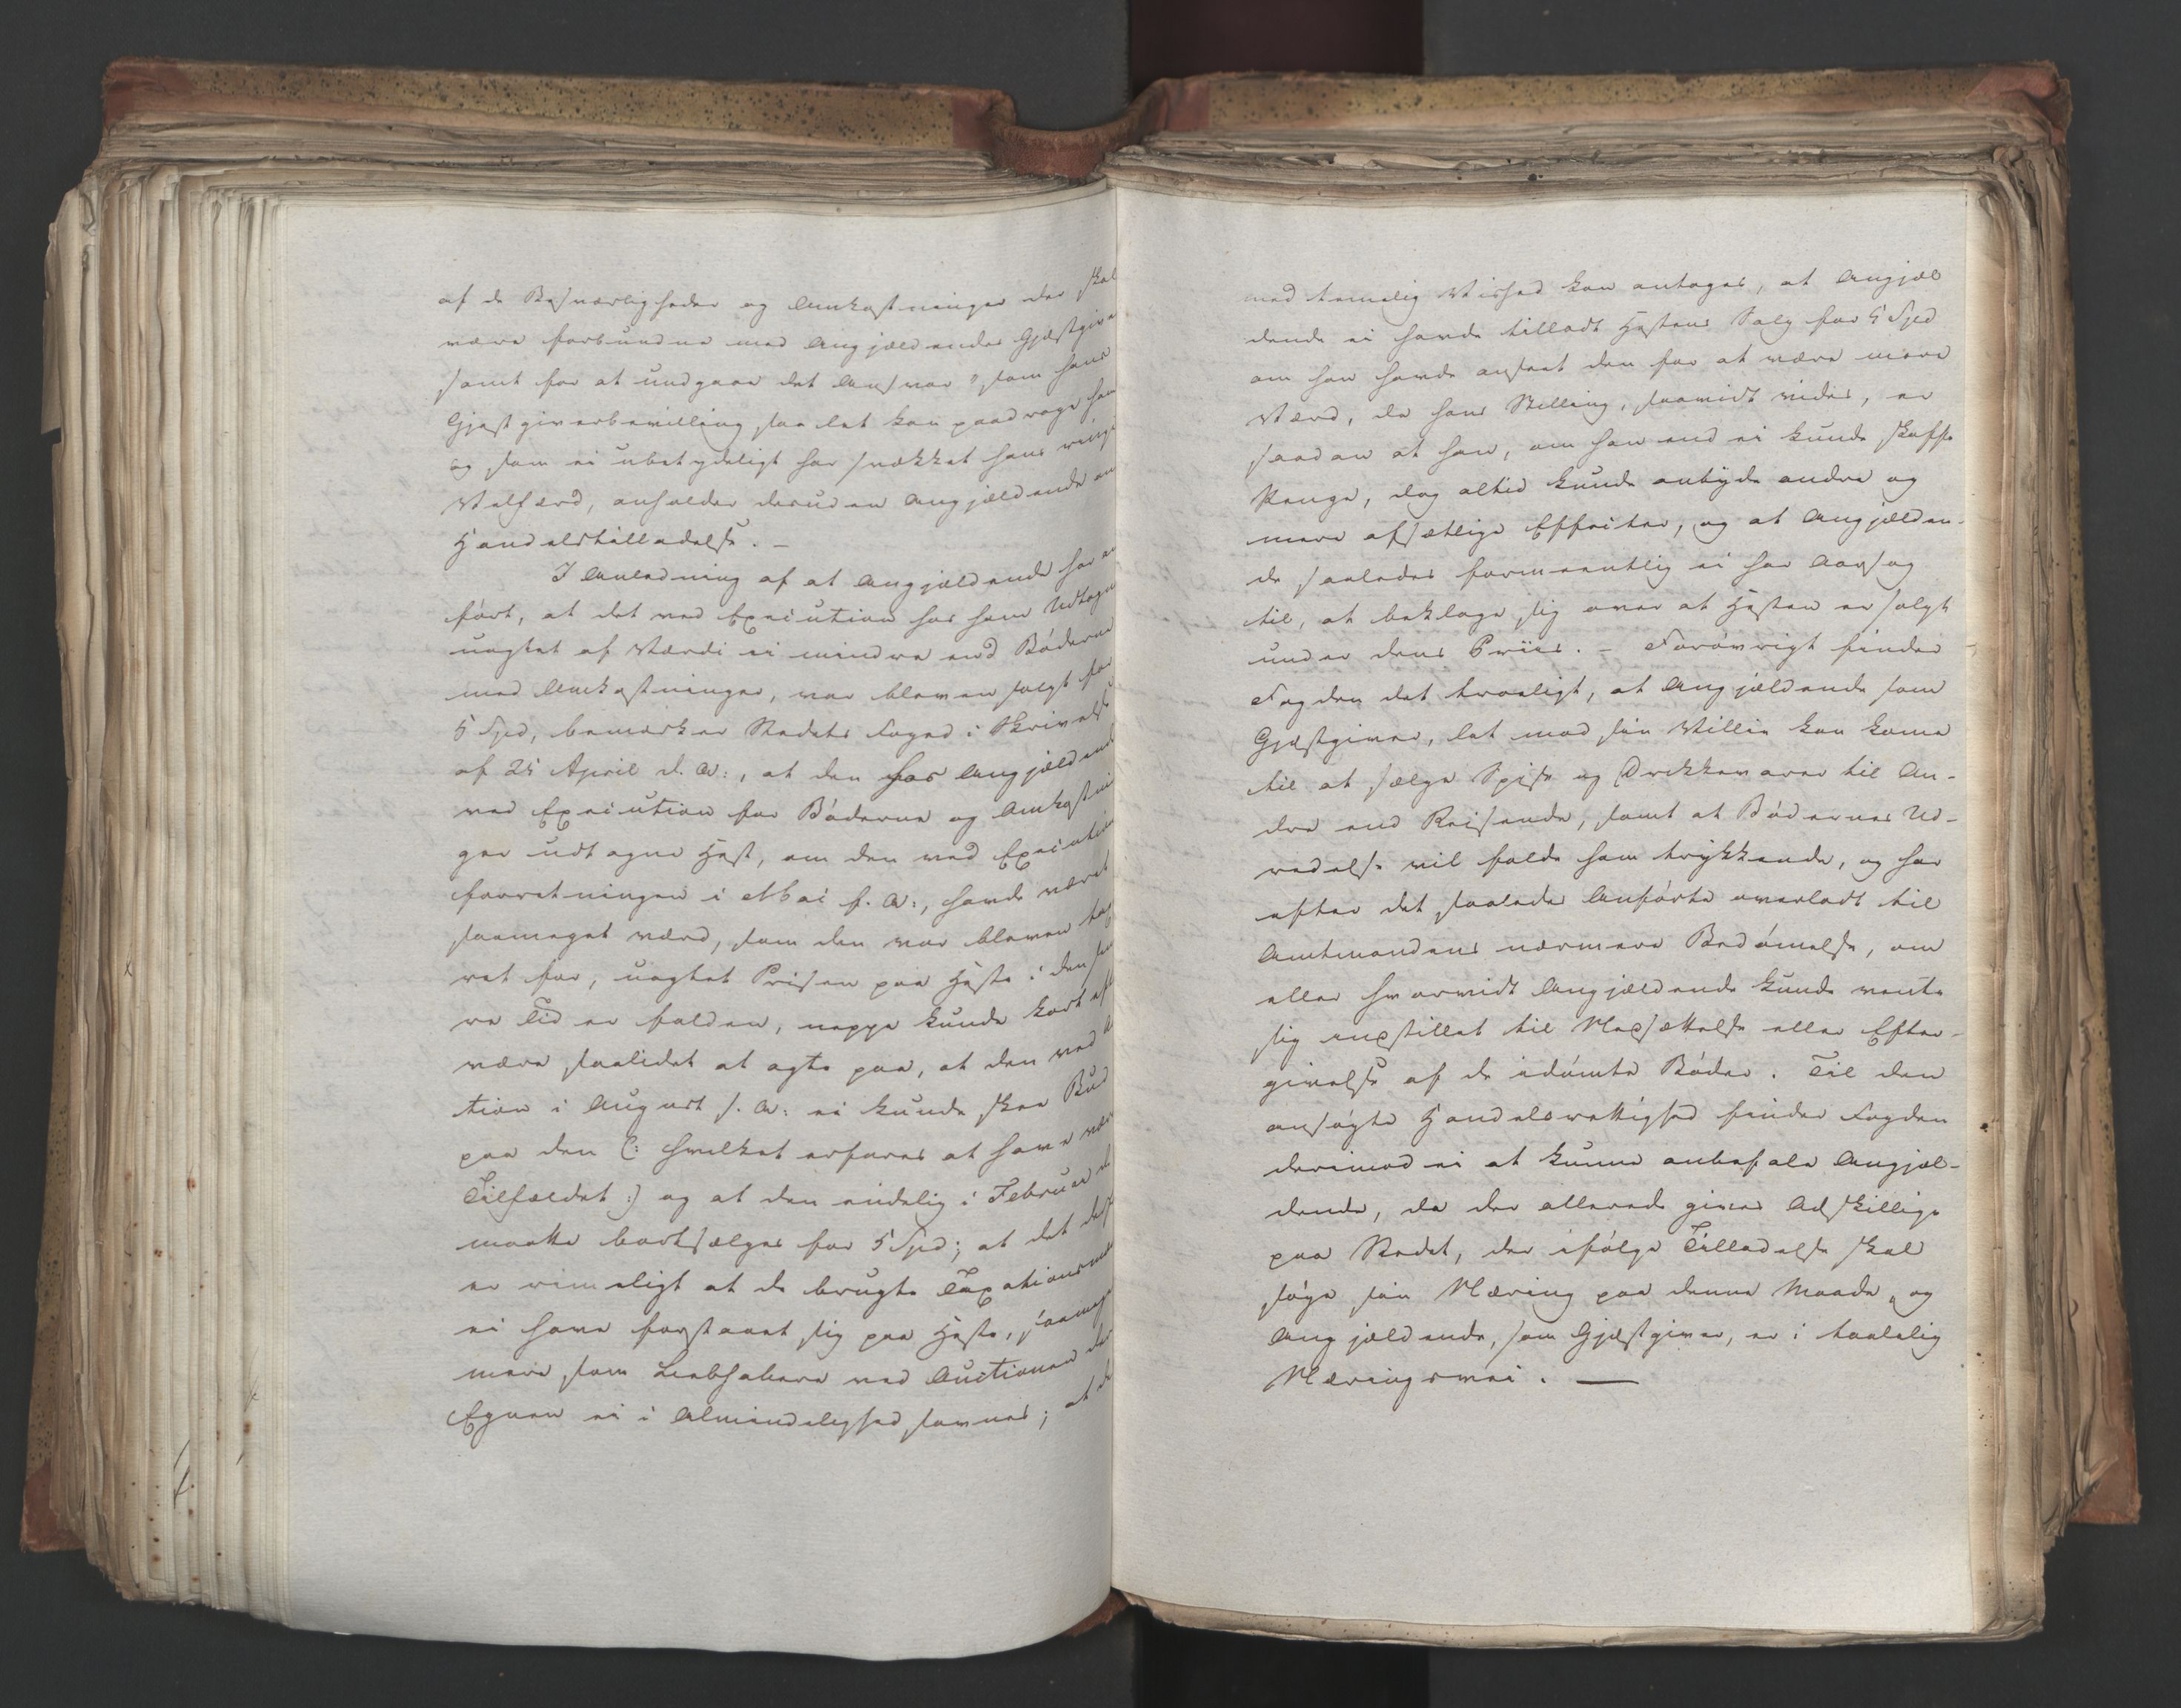 af de Besværligheder og Omkostninger der skal
være forbundne med Angjældendes Gjæstgive
samt for at undgaae det Ansvar, som hans
Gjæstgiverbevilling saa let kan paadrage ham
og som ei ubetydeligt har svækket hans ringe
Velfærd, anholder desuden Angjældende om
Handelstilladelse. –
I Anledning af at Angjældende har an
ført, at det ved Execution hos ham Udtagne
uagtet af Værdi ei mindre end Bøderne
med Omkostninger, var bleven solgt for
5 Spd, bemærker Stedets Foged i Skrivelse
af 25 April d. A:, at den hos Angjældende
ved Execution for Bøderne og Omkostnin
ger udtagne Hest, om den ved Executions
forretningen i Mai f. A:, havde været
saameget værd, som den var bleven taxe
ret for, uagtet Prisen paa Heste i den sene
re Tid er falden, neppe kunde kort efter
være saalidet at agte paa, at den ved Auc
tion i August s. A: ei kunde skee Bud
paa den (: hvilket erfares at have været
Tilfældet :) og at den endelig i Februar d.
maatte bortsælges for 5 Spd; at det dess
er rimeligt at de brugte Taxationsmænd
ei have forstaaet sig paa Heste, saameget
mere, som Liebhabere ved Auctioner der
Egnen ei i Almindelighed savnes; at de
med temmelig Vished kan antages, at Angjæl
dende ei havde tilladt Hestens Salg for 5 Spd
om han havde anseet den for at være mere
Værd, da hans Stilling, saavidt vides, er
saadan at han, om han end ei kunde skaffe
Penge, dog altid kunde anbyde andre og
mere afsætlige Effecter, og at Angjælden-
de saaledes formeentlig ei har Aarsag
til, at beklage sig over at Hesten er solgt
under dens Priis. – Forøvrigt finder
Fogden det troeligt, at Angjældende som
Gjæstgiver, let mod sin Villie kan komme
til at sælge Spise og Drikkevarer til An-
dre end Reisende, samt at Bødernes Ud-
redelse vil falde ham trykkende, og har
efter det saaledes Anførte overladt til
Amtmandens nærmere Bedømelse, om
eller hvorvidt Angjældende kunde vente
sig indstillet til Nedsættelse eller Efter-
givelse af de idømte Bøder. Til den
ansøgte Handelsrettighed finder Fogden
derimod ei at kunne anbefale Angjæl-
dende, da der allerede gives Adskillige
paa Stedet, der ifølge Tilladelse skal
søge sin Næring paa denne Maade, og
Angjældende, som Gjæstgiver, er i taalelig
Næringsvei. —